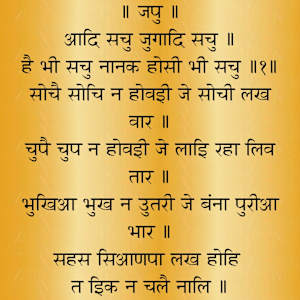 ॥ जपु ॥
आदि सचु जुगादि सचु ॥
है भी सचु नानक होसी भी सचु ॥१॥
सोचै सोचि न होवई जे सोची लख
वार ॥
चुपै चुप न होवई जे लाइ रहा लिव
तार ॥
भुखिआ भुख न उतरी जे बंना पुरीआ
भार ॥
सहस सिआणपा लख होहि
त इिक न चलै नालि ॥